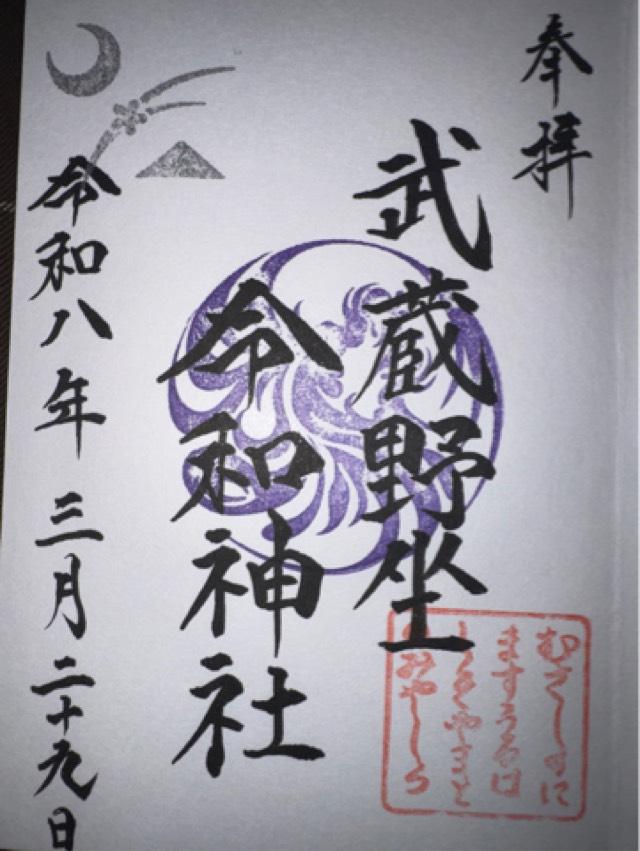 奉拝
武蔵野坐
令和神社
令和八年 三月二十九日
むさしのに
ますうるは
しきやまと
のみやしろ